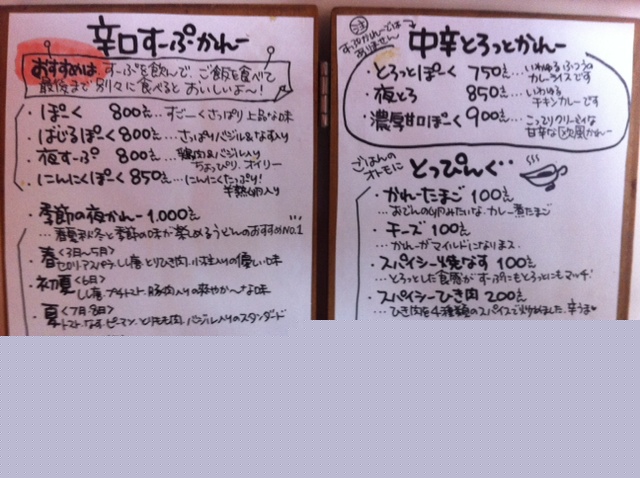 辛口すーぷかれー
おすすめは、すーぷを飲んで、ご飯を食べて
最後まで別々に食べるとおいしいよ〜!
・ぽーく 800えん…すごーくさっぱり上品な味
・ばじるぽーく 800えん…さっぱりバジル&なす入り
・夜すーぷ 800えん…鶏肉&バジル入り
ちょっぴり、オイリー
・にんにくぽーく 850えん…にんにくたっぷり!
半熟卵入り
・季節の夜かれー 1,000えん
…春夏秋冬と季節の味が楽しめるうどんのおすすめNO.1
・春<3月〜5月>
セロリ・アスパラ・しし唐・とりひき肉・小柱入りの優しい味
・初夏<6月>
しし唐・プチトマト・豚肉入りの爽やか〜な味
・夏<7月・8月>
トマト・なす・ピーマン・とりもも肉・バジル入りのスタンダード
注 すーぷかれーでは
ありません
中辛とろっとかれー
・とろっとぽーく 750えん…いわゆるふつうな
カレーライスです
・夜とろ 850えん…いわゆる
チキンカレーです
・濃厚甘口ぽーく 900えん…こってりクリーミィな
甘辛な欧風かれー
ごはんの
オトモに
とっぴんぐ・・
・かれーたまご 100えん
…おでんの卵みたいな、カレー煮たまご
・チーズ 100えん
…かれーがマイルドになります。
・スパイシー焼なす 100えん
…とろっとした食感がすーぷにもとろっとにもマッチ!
・スパイシーひき肉 200えん
…ひき肉を4種類のスパイスで炒めました。辛うま♥